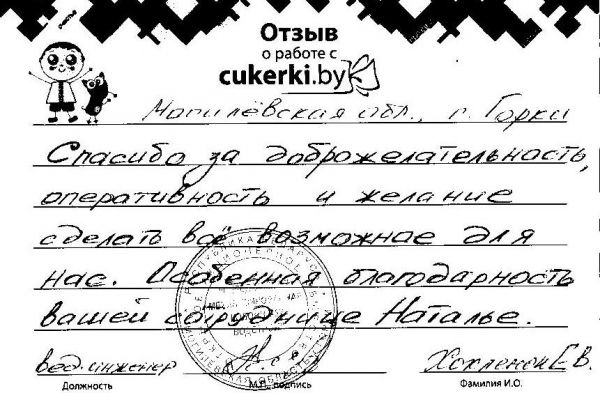 Отзыв
о работе с
cukerki.by
Могилёвская обл., г. Горки
Спасибо за доброжелательность,
оперативность и желание
сделать всё возможное для
нас. Особенная благодарность
вашей сотруднице Наталье.
вед. инженер
Должность
М.П. подпись
Фамилия И.О.